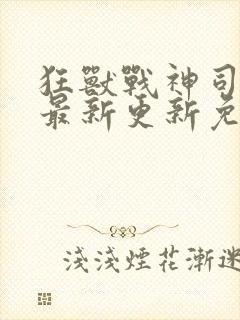 狂獸戰神司
最新更新免
淺淺煙花漸迷